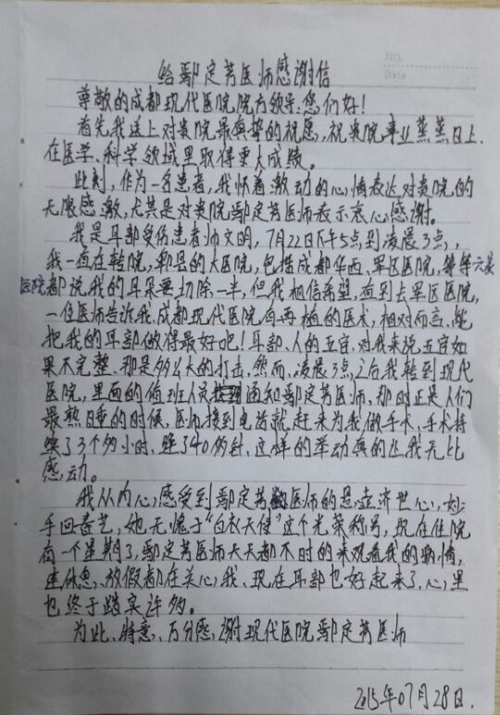 NO.
Date
给鄢定芳医师感谢信
尊敬的成都现代医院院方领导您们好!
首先我送上对贵院最真挚的祝愿,祝贵院事业蒸蒸日上.
在医学、科学领域里取得重大成绩。
此刻,作为一名患者,我怀着激动的心情表达对贵院的
无限感激,尤其是对贵院鄢定芳医师表示衷心感谢。
我是耳部受伤患者师文明,7月22日下午5点到凌晨3点,,
我一直在转院,郫县的大医院,包括成都华西、军区医院,等等六家
医院都说我的耳朵要切除一半,但我相信希望,直到去军区医院,
一位医师告诉我,成都现代医院有再植的医术,相对而言,能
把我的耳部做得最好吧!耳部、人的五官,对我来说五官如
果不完整、那是多么大的打击,然而,凌晨3点,之后我转到现代
医院,里面的值班人员通知鄢定芳医师,那时正是人们
最熟睡的时候,医师接到电话就赶来为我做手术,手术持
续了3个多小时,缝了40多针,这样的举动真的让我无比
感动。
我从内心感受到鄢定芳医师的悬壶济世心,妙
手回春艺,她无愧于“白衣天使”这个光荣称号,现在住院
有一个星期了,鄢定芳医师天天都不时的来观看我的病情,
连休息、放假都在关心我、现在耳部也好起来了,心里
也终于踏实许多。
为此、特意、万分感谢现代医院鄢定芳医师
2015年07月28日.